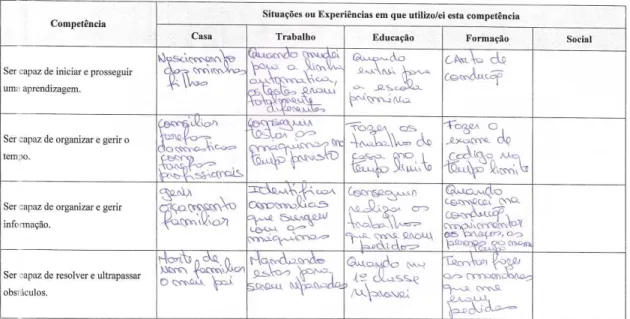 Competência
Situações ou Experiências em que utilizo/ei esta competência
Casa
Trabalho
Educação
Formação
Social
Ser capaz de iniciar e prosseguir
uma aprendizagem.
Nascimento
das minhas
filhas
Quando mudei
para a linha
automatica,
os testes eram
totalmente
diferentes
Quando
entrei para
a escola
primária
Carta de
condução
Ser capaz de organizar e gerir o
tempo.
Consiliar
tarefas
domesticas
com
tarefas
profissionais
Conseguir
testar as
maquinas no
tempo previsto
Fazer os
trabalhos de
casa no
tempo limite
Fazer o
exame de
codigo no
tempo limite
Ser capaz de organizar e gerir
informação.
gerir
orçamento
familiar
Identificar
anomalias
que surgem
com as
maquinas
Conseguir
realizar os
trabalhos
que me eram
pedidos
Quando
comecei na
condução
movimentar
os braços, as
pernas ao mesmo
tempo
Ser capaz de resolver e ultrapassar
obstáculos.
Morte de
um familiar
o meu pai
Mandando
estas para
serem reparadas
Quando na
1ª classe
reprovei
Tentar fazer
as manobras
que me
eram
pedidas